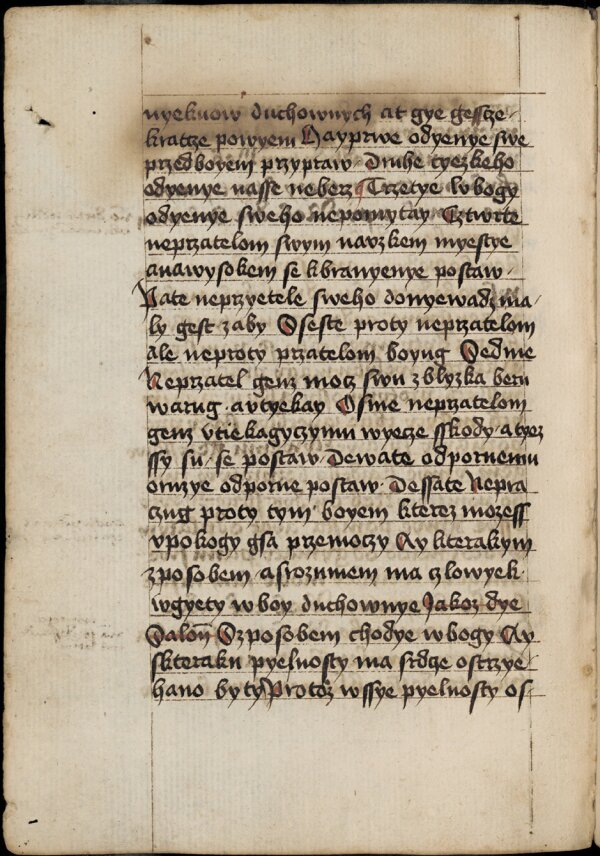 nyekuow duchownych at gye gessze
kratze powyem Nayprwe odyenye swe
przedboyem przypraw · Druhe tyezkeho
odyenye nasse neberz Trzetye w bogy
odyenye sweho nepomytay · Cztwrte
neprzatelom swym narzkem myestye
anawysokem se kbranyenye postaw ·
Pate neprzyetele sweho donyewadz ma/
ly gest zaby Sseste proty neprzatelom
ale neproty przatelom boyug Sedme
Neprzatel genz mocz swu zblyzka beru
warug · avtyekay Osme neprzatelom
genz vtiekagyczymu wyecze sskody · atyez
ssy su · se postaw · Dewate odpornemu
omzye odporne postaw · Dessate Nepra
czug proty tym boyem kterez mozess
vpokogy gsa przemoczy Ay kterakym
zposobem · asrozumem ma czlowyek ·
wgyety wboy duchownye Jakoz dye
Salon Szposobem chodye wbogy Ay
skteraku pyelnosty ma srdge ostrzye
hano byty Protoz wssye pyelnosty os